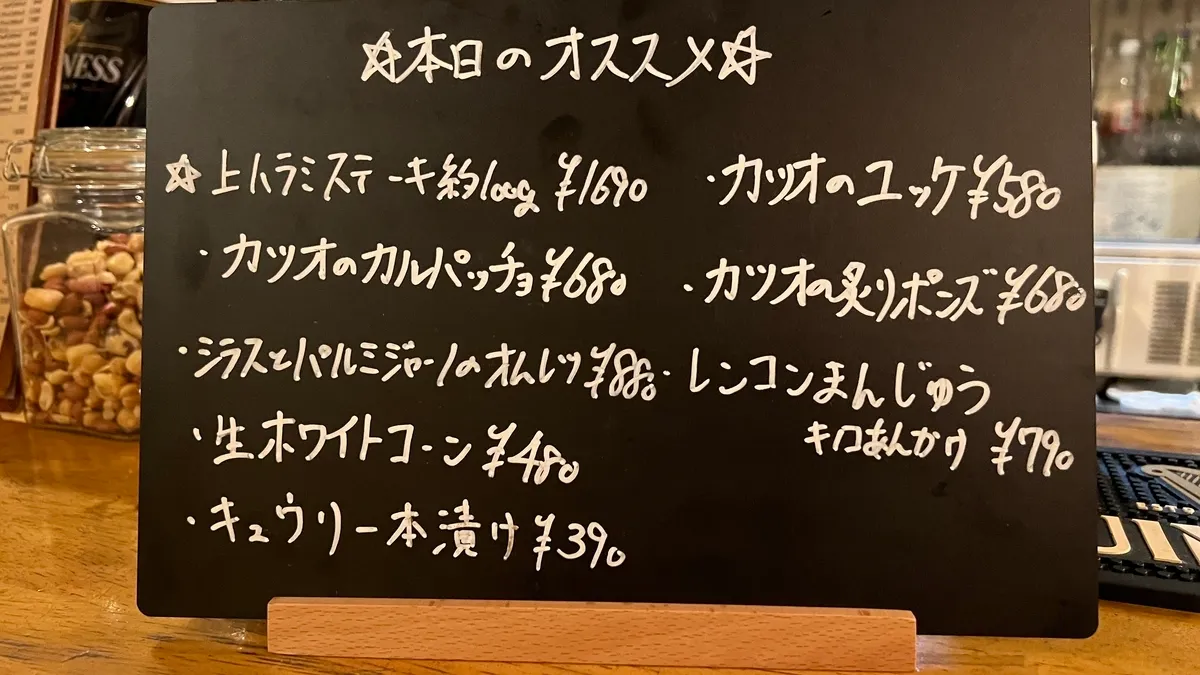 ☆本日のオススメ☆
☆上ハラミステーキ約100g ¥1690
・カツオのカルパッチョ¥680
・シラスとパルミジャーノのオムレツ¥880
・生ホワイトコーン¥480
・キュウリ一本漬け¥390
・カツオのユッケ¥580
・カツオの炙りポンズ¥680
・レンコンまんじゅう
キノコあんかけ ¥790
NESS